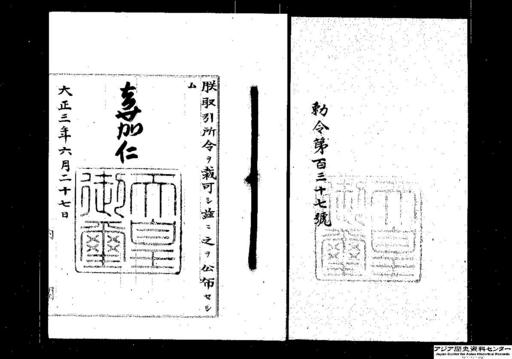 勅令第百三十七號
朕取引所令ヲ裁可シ玆ニ之ヲ公布セシ
ム
嘉仁
天皇御璽
大正三年六月二十七日
内閣
アジア歴史資料センター
Japan Center for Asian Historical Records